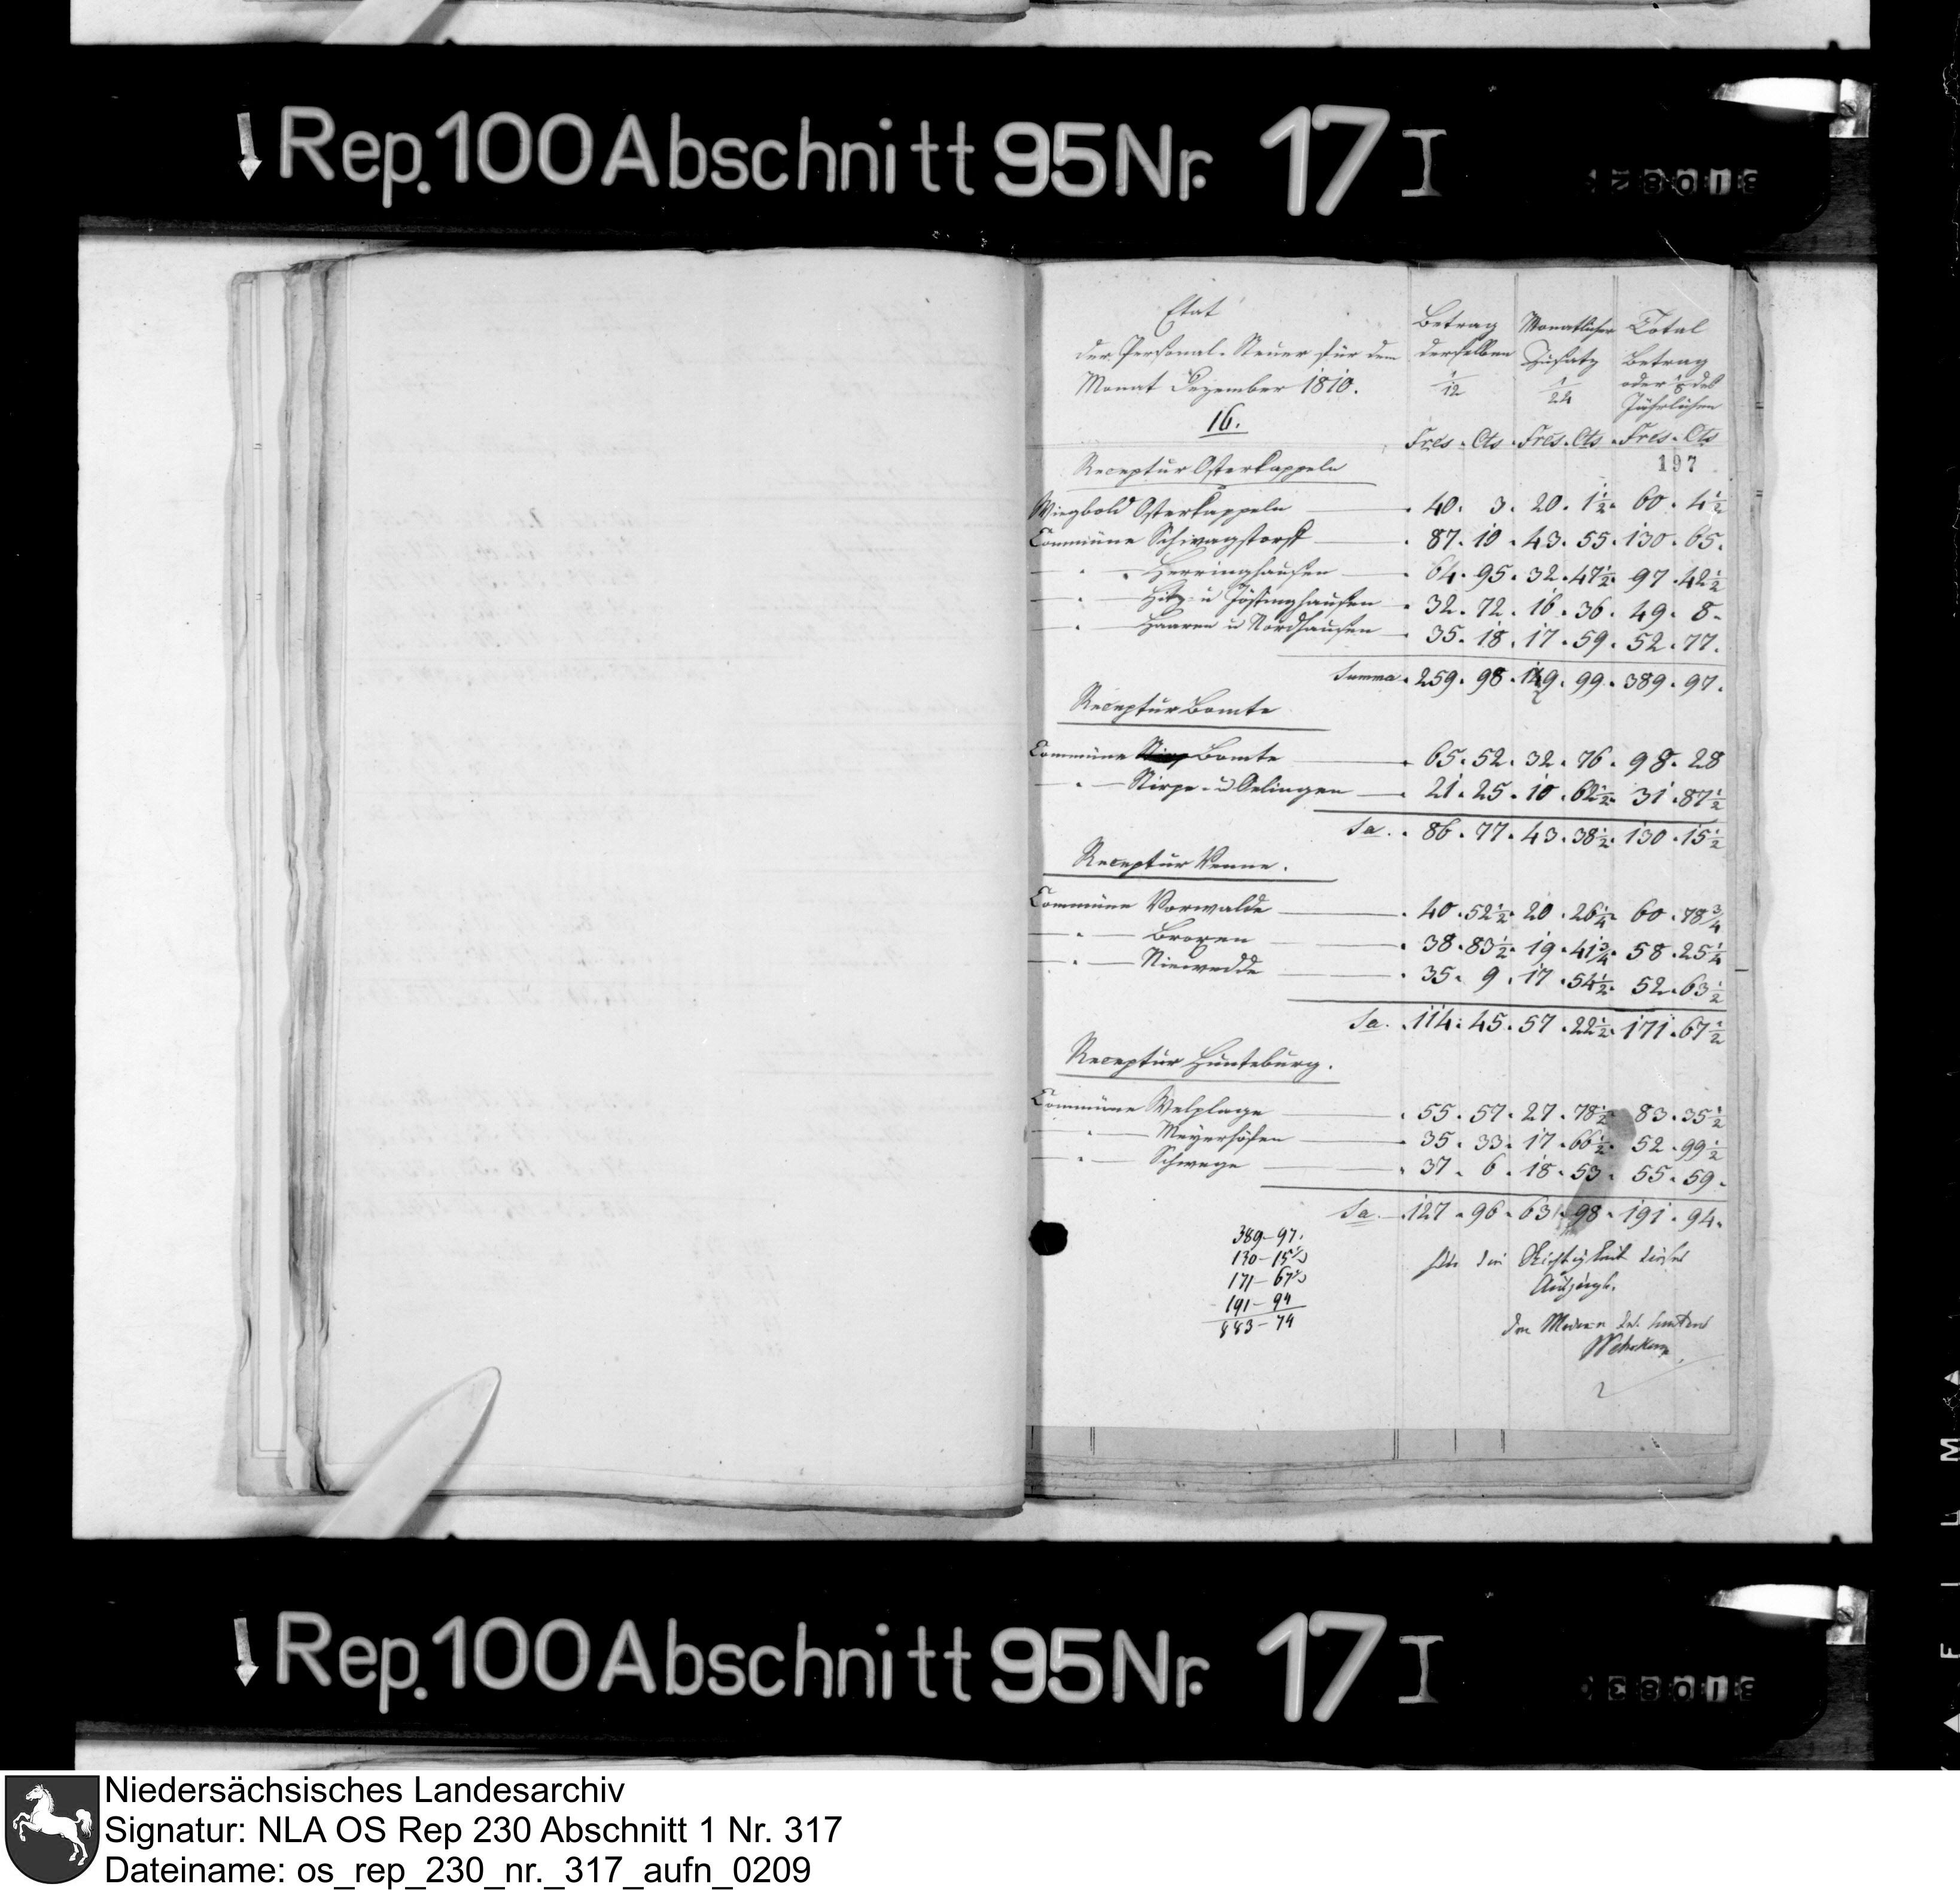 Rep. 100 Abschnitt 95 Nr. 17 I
Etat
der Personal-Steuer für dem
Monat Dezember 1810.
16.
Betrag
derselben
1/12
Monatlicher
Zusatz
1/24
Total
Betrag
oder 1/8 des
Jährlichen
Frcs. Cts. Frcs. Cts. Frcs. Cts
197
Receptur Osterkappeln
Wiegbold Osterkappeln 40. 3. 20. 1½. 60. 4½
Commüne Schwagstorff 87. 10. 43. 55. 130. 65.
" Herringhausen 64. 95. 32. 47½. 97. 42½
" Hitz- u Jöstinghausen 32. 72. 16. 36. 49. 8.
" Haaren u Nordhausen 35. 18. 17. 59. 52. 77.
Summa. 259. 98. 129. 99. 389. 97.
Receptur Bomte
Commüne Bomte 65. 52. 32. 76. 98. 28
" Stirpe- u Oelingen 21. 25. 10. 62½. 31. 87½
Sa. 86. 77. 43. 38½. 130. 15½
Receptur Venne.
Commüne Vorwalde 40. 52½. 20. 26¼. 60. 78¾
" Broxen 38. 83½. 19. 41¾. 58. 25¼
" Niewedde 35. 9. 17. 54½. 52. 63½
Sa. 114. 45. 57. 22½. 171. 67½
Receptur Hunteburg.
Commüne Welplage 55. 57. 27. 78½. 83. 35½
" Meyerhöfen 35. 33. 17. 66½. 52. 99½
" Schwege 37. 6. 18. 53. 55. 59.
Sa. 127. 96. 63. 98. 191. 94.
389-97.
130-15½
171-67½
191-94
883-74
Für die Richtigkeit dieses
Auszugs.
Der Maire des Cantons
Rep. 100 Abschnitt 95 Nr. 17 I
FILM
Niedersächsisches Landesarchiv
Signatur: NLA OS Rep 230 Abschnitt 1 Nr. 317
Dateiname: os_rep_230_nr._317_aufn_0209